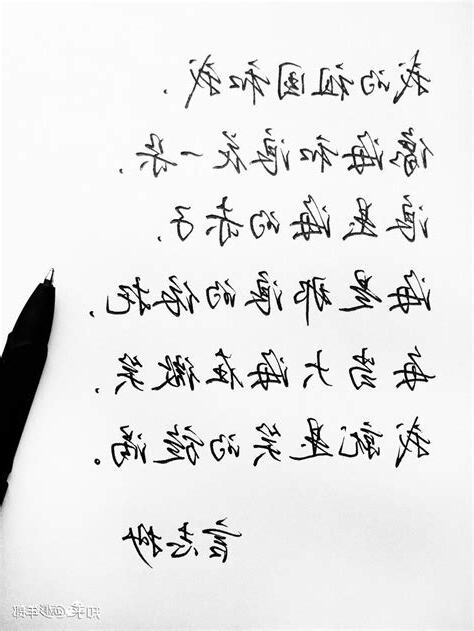 我的祖国和我，
像海和浪花一朵，
浪是海的赤子，
海是那浪的依托，
每当大海在微笑，
我就是笑的旋涡。
知乎